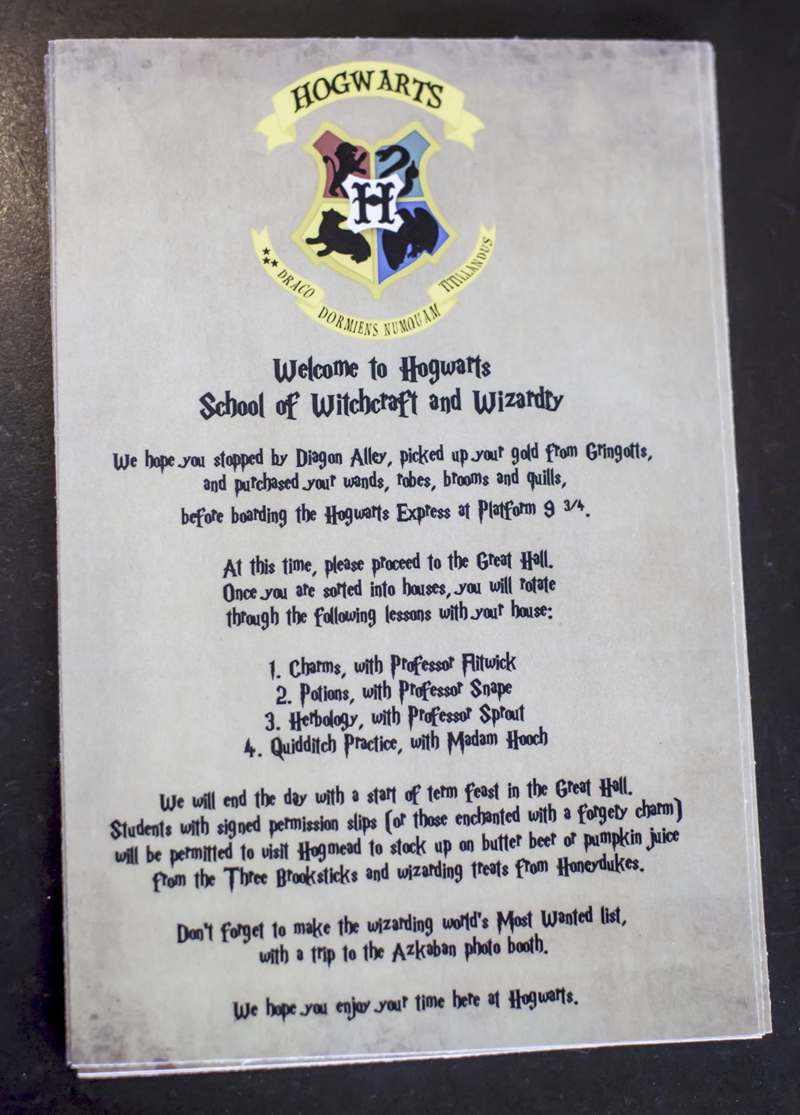 HOGWARTS
H
DRACO DORMIENS NUMQUAM TITILLANDUS
Welcome to Hogwarts
School of Witchcraft and Wizardry
We hope you stopped by Diagon Alley, picked up your gold from Gringotts,
and purchased your wands, robes, brooms and quills,
before boarding the Hogwarts Express at Platform 9 3/4.
At this time, please proceed to the Great Hall.
Once you are sorted into houses, you will rotate
through the following lessons with your house:
1. Charms, with Professor Flitwick
2. Potions, with Professor Snape
3. Herbology, with Professor Sprout
4. Quidditch Practice, with Madam Hooch
We will end the day with a start of term feast in the Great Hall.
Students with signed permission slips (or those enchanted with a forgery charm)
will be permitted to visit Hogmead to stock up on butter beer or pumpkin juice
from the Three Brooksticks and wizarding treats from Honeydukes.
Don't forget to make the wizarding world's Most Wanted list,
with a trip to the Azkaban photo booth.
We hope you enjoy your time here at Hogwarts.